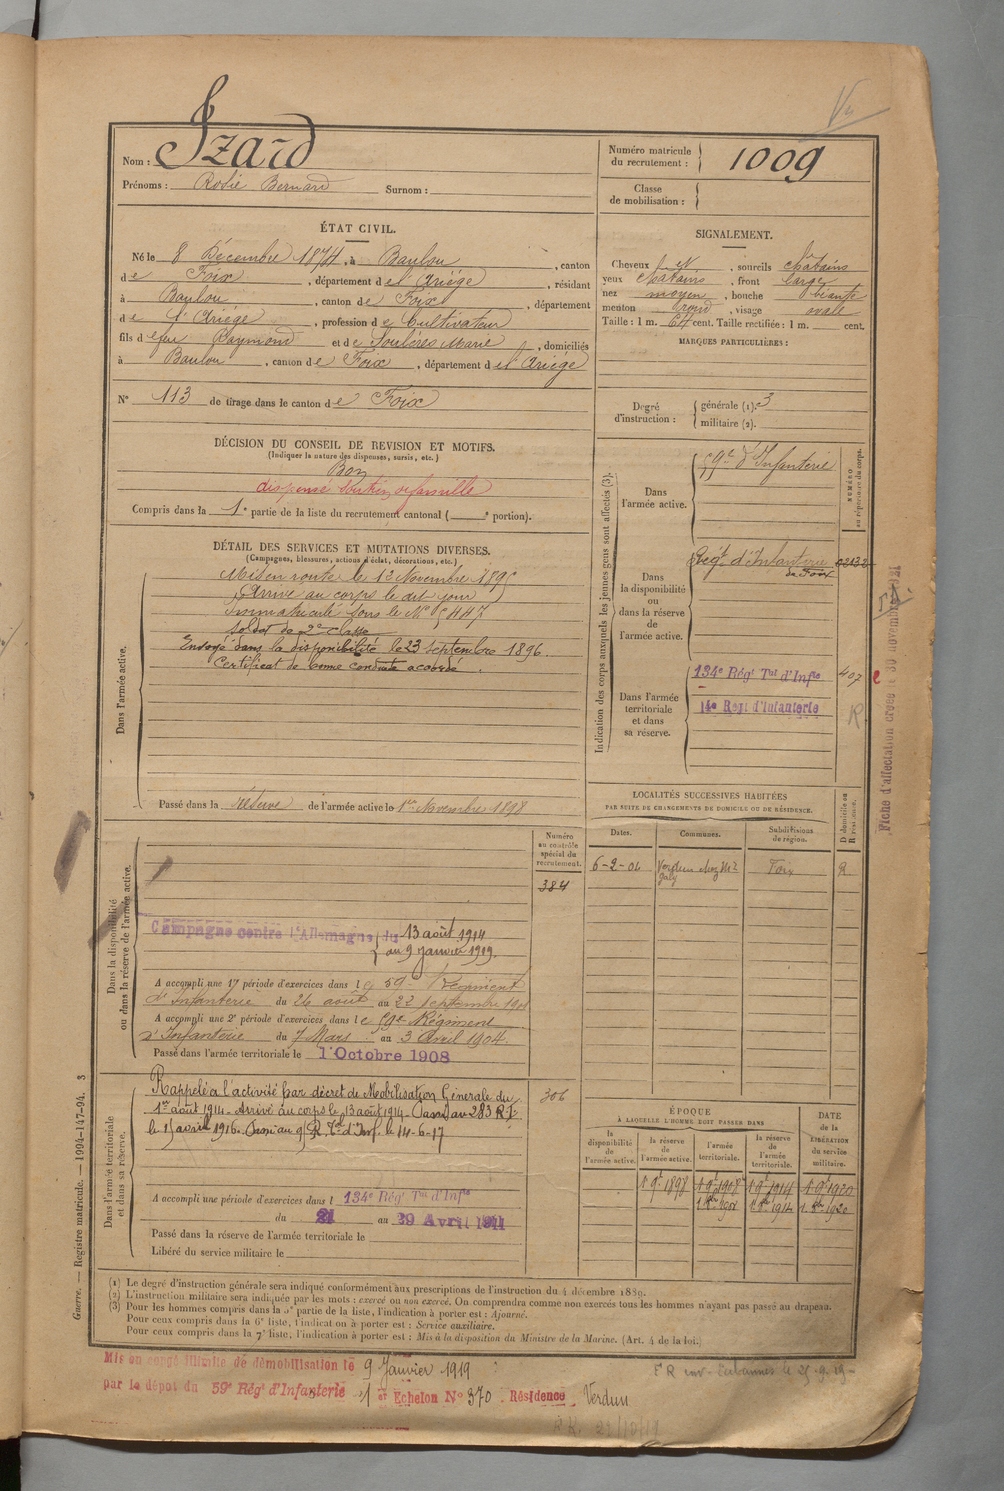 Nom : Izard
Prénoms : Rosie Bernard Surnom :
Numéro matricule du recrutement : 1009
Classe de mobilisation :
ÉTAT CIVIL.
Né le 8 Décembre 1874, à Baulou, canton
de Foix, département de l'Ariége, résidant
à Baulou, canton de Foix, département
de l'Ariége, profession de Cultivateur
fils de feu Raymond et de Soulères Marie, domiciliés
à Baulou, canton de Foix, département de l'Ariége
N° 113 de tirage dans le canton de Foix
DÉCISION DU CONSEIL DE REVISION ET MOTIFS.
(Indiquer la nature des dispenses, sursis, etc.)
Bon
dispensé soutien de famille
Compris dans la 1e partie de la liste du recrutement cantonal ( e portion).
DÉTAIL DES SERVICES ET MUTATIONS DIVERSES.
(Campagnes, blessures, actions d'éclat, décorations, etc.)
Dans l'armée active.
Mis en route le 12 Novembre 1895
Arrivé au corps le dit jour
Immatriculé sous le N° 5447
Soldat de 2e classe
Envoyé dans la disponibilité le 23 septembre 1896.
Certificat de bonne conduite accordé.
Passé dans la réserve de l'armée active le 1er Novembre 1898
SIGNALEMENT.
Cheveux N, sourcils châtains
yeux châtains, front large
nez moyen, bouche béante
menton rond, visage ovale
Taille : 1 m. 64 cent. Taille rectifiée : 1 m. cent.
MARQUES PARTICULIÈRES :
Degré d'instruction : générale (1). 3
militaire (2).
Indication des corps auxquels les jeunes gens sont affectés (3).
NUMÉRO au répertoire du corps.
Dans l'armée active.
59e d'Infanterie
Dans la disponibilité ou dans la réserve de l'armée active.
Régt d'Infanterie de Foix
Dans l'armée territoriale et dans sa réserve.
134e Régt Tal d'Infie 407
14e Regt d'Infanterie
R
Fiche d'affectation créée le 30 novembre 1921
LOCALITÉS SUCCESSIVES HABITÉES
PAR SUITE DE CHANGEMENTS DE DOMICILE OU DE RÉSIDENCE.
Dates. Communes. Subdivisions de région. D domicile ou R résidence.
6-2-04 Verdun chez Mr Galy Foix R
Dans la disponibilité ou dans la réserve de l'armée active.
Numéro au contrôle spécial du recrutement.
384
Campagne contre l'Allemagne du 13 août 1914
au 9 Janvier 1919.
A accompli une 1re période d'exercices dans le 59e Régiment
d'Infanterie du 26 août au 22 septembre 1901
A accompli une 2e période d'exercices dans le 59e Régiment
d'Infanterie du 7 Mars au 3 Avril 1904.
Passé dans l'armée territoriale le 1er Octobre 1908
Dans l'armée territoriale et dans sa réserve.
306
Rappelé à l'activité par décret de Mobilisation Générale du
1er août 1914. Arrivé au corps le 13 août 1914. Passé au 283 R.I.
le 15 avril 1916. Passé au 95 R. Tal d'Inf. le 14-6-17
A accompli une période d'exercices dans le 134e Régt Tal d'Infie
du 21 au 29 Avril 1911
Passé dans la réserve de l'armée territoriale le
Libéré du service militaire le
ÉPOQUE
À LAQUELLE L'HOMME DOIT PASSER DANS
la disponibilité de l'armée active. la réserve de l'armée active. l'armée territoriale. la réserve de l'armée territoriale. DATE de la LIBÉRATION du service militaire.
1 9e 1898 1 9e 1908 1 9e 1914 1 9e 1920
(1) Le degré d'instruction générale sera indiqué conformément aux prescriptions de l'instruction du 4 décembre 1889.
(2) L'instruction militaire sera indiquée par les mots : exercé ou non exercé. On comprendra comme non exercés tous les hommes n'ayant pas passé au drapeau.
(3) Pour les hommes compris dans la 5e partie de la liste, l'indication à porter est : Ajourné.
Pour ceux compris dans la 6e liste, l'indication à porter est : Service auxiliaire.
Pour ceux compris dans la 7e liste, l'indication à porter est : Mis à la disposition du Ministre de la Marine. (Art. 4 de la loi.)
Guerre. — Registre matricule. — 1994-147-94. 3
Mis en congé illimité de démobilisation le 9 Janvier 1919
par le dépot du 59e Régt d'Infanterie 1er Echelon N° 370 Résidence Verdun